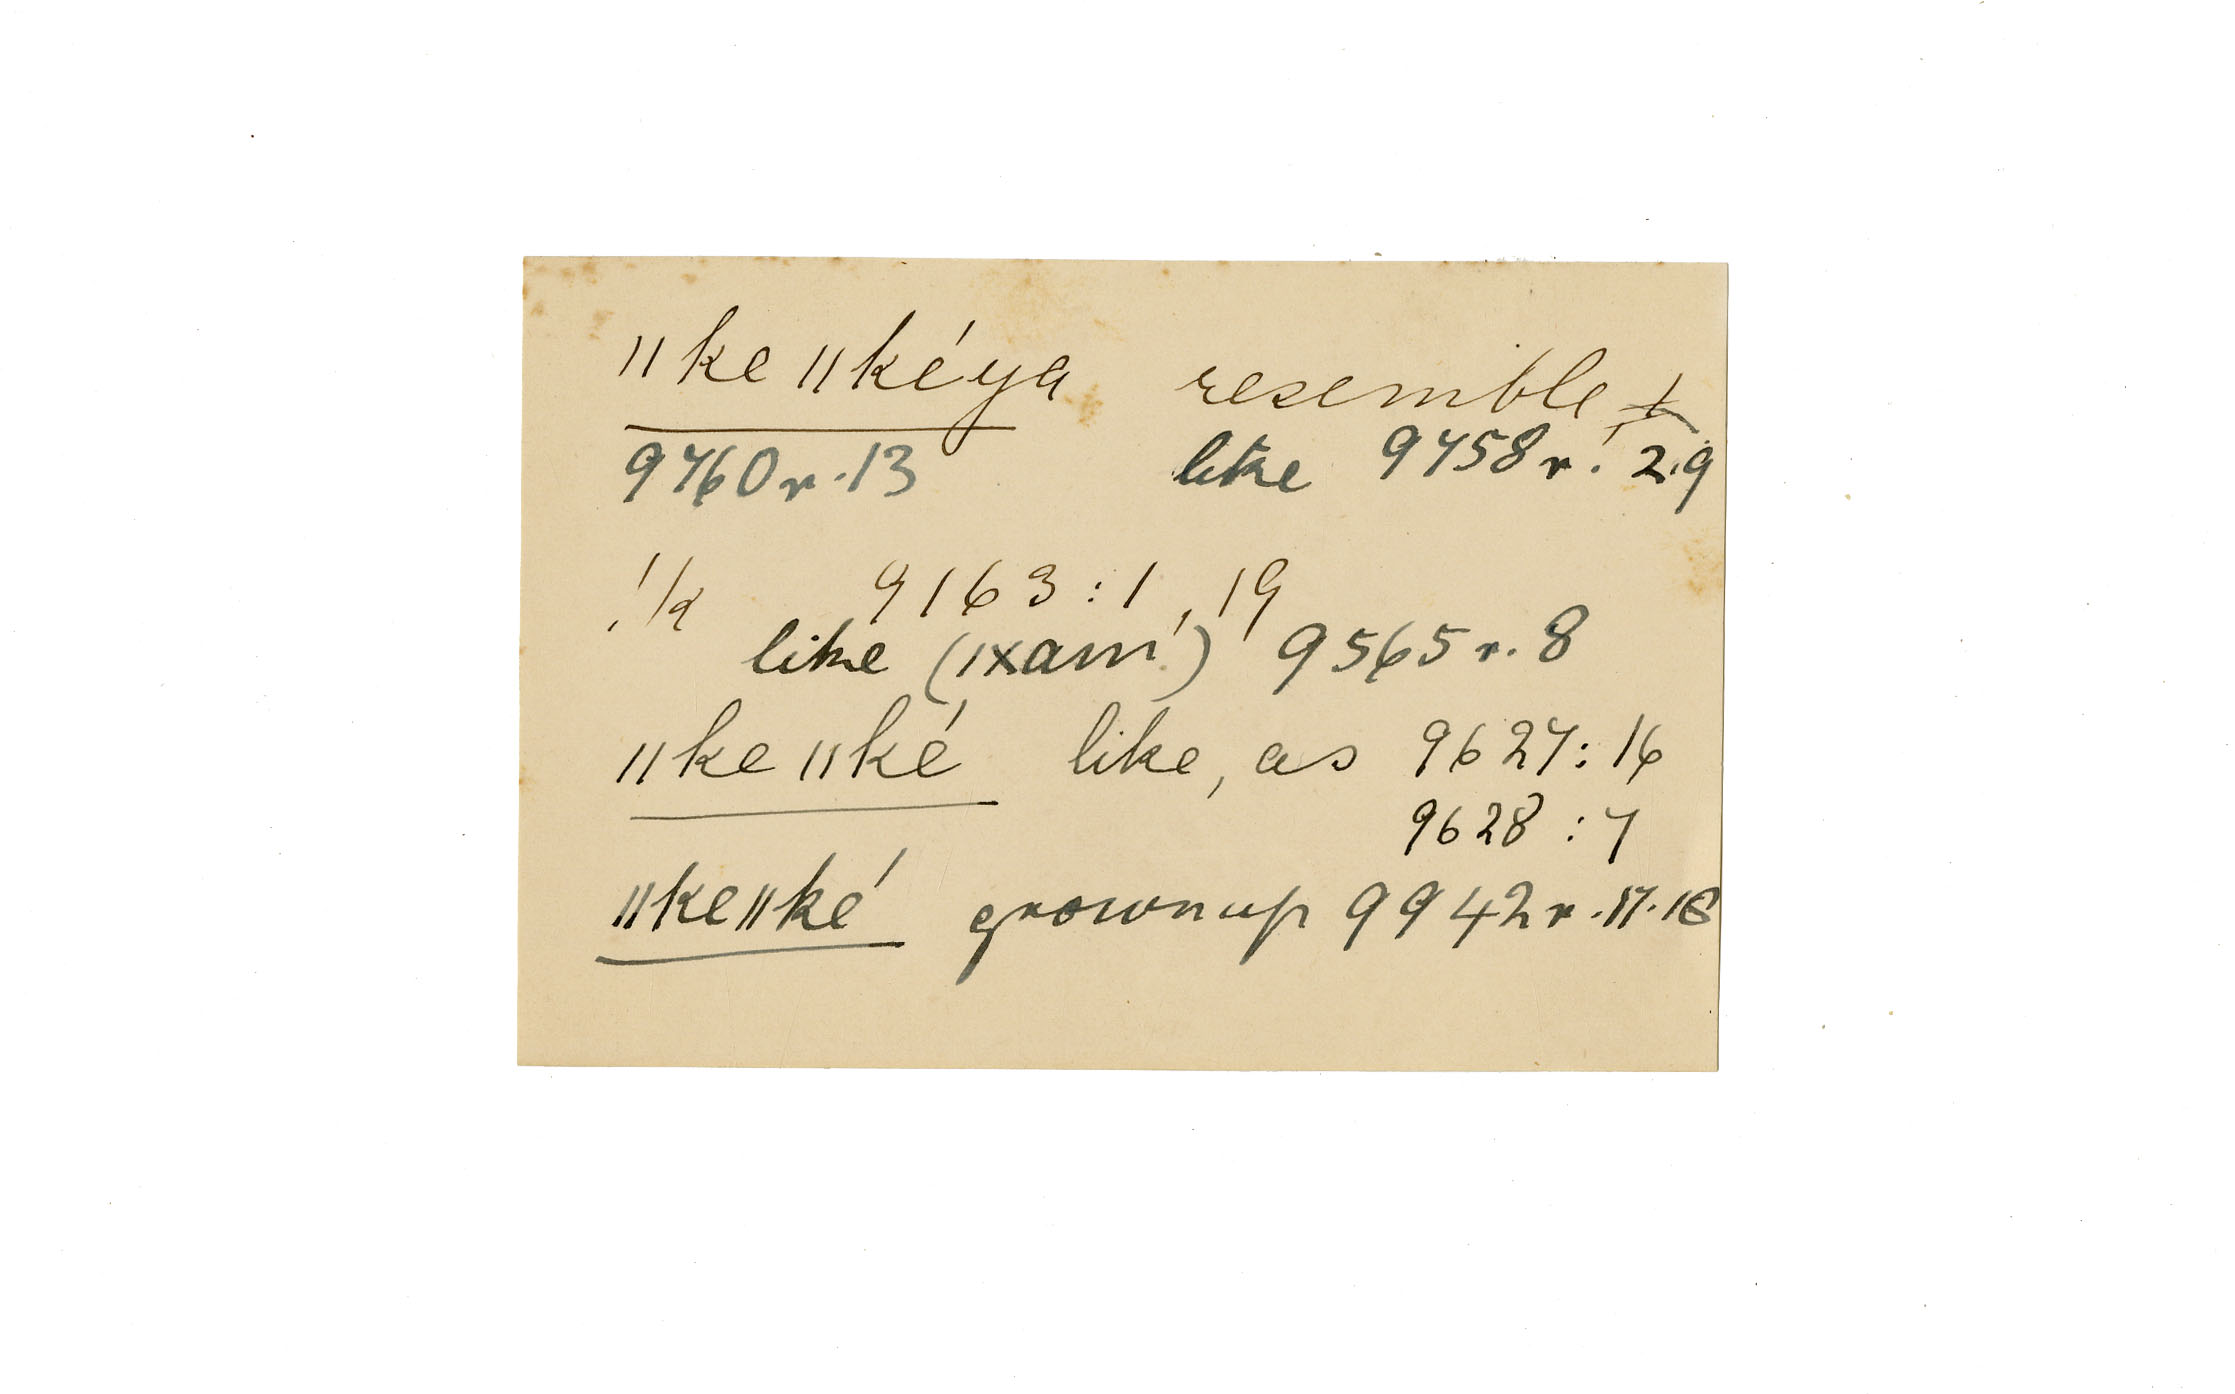 ǁkeǁkéya resemble
9760r.13 like 9758r.' 2.9
9163:1,19
like (ǀxam) 9565r.8
ǁkeǁké like, as 9627:16
9628:7
ǁkeǁké grown up 9942r.17.18